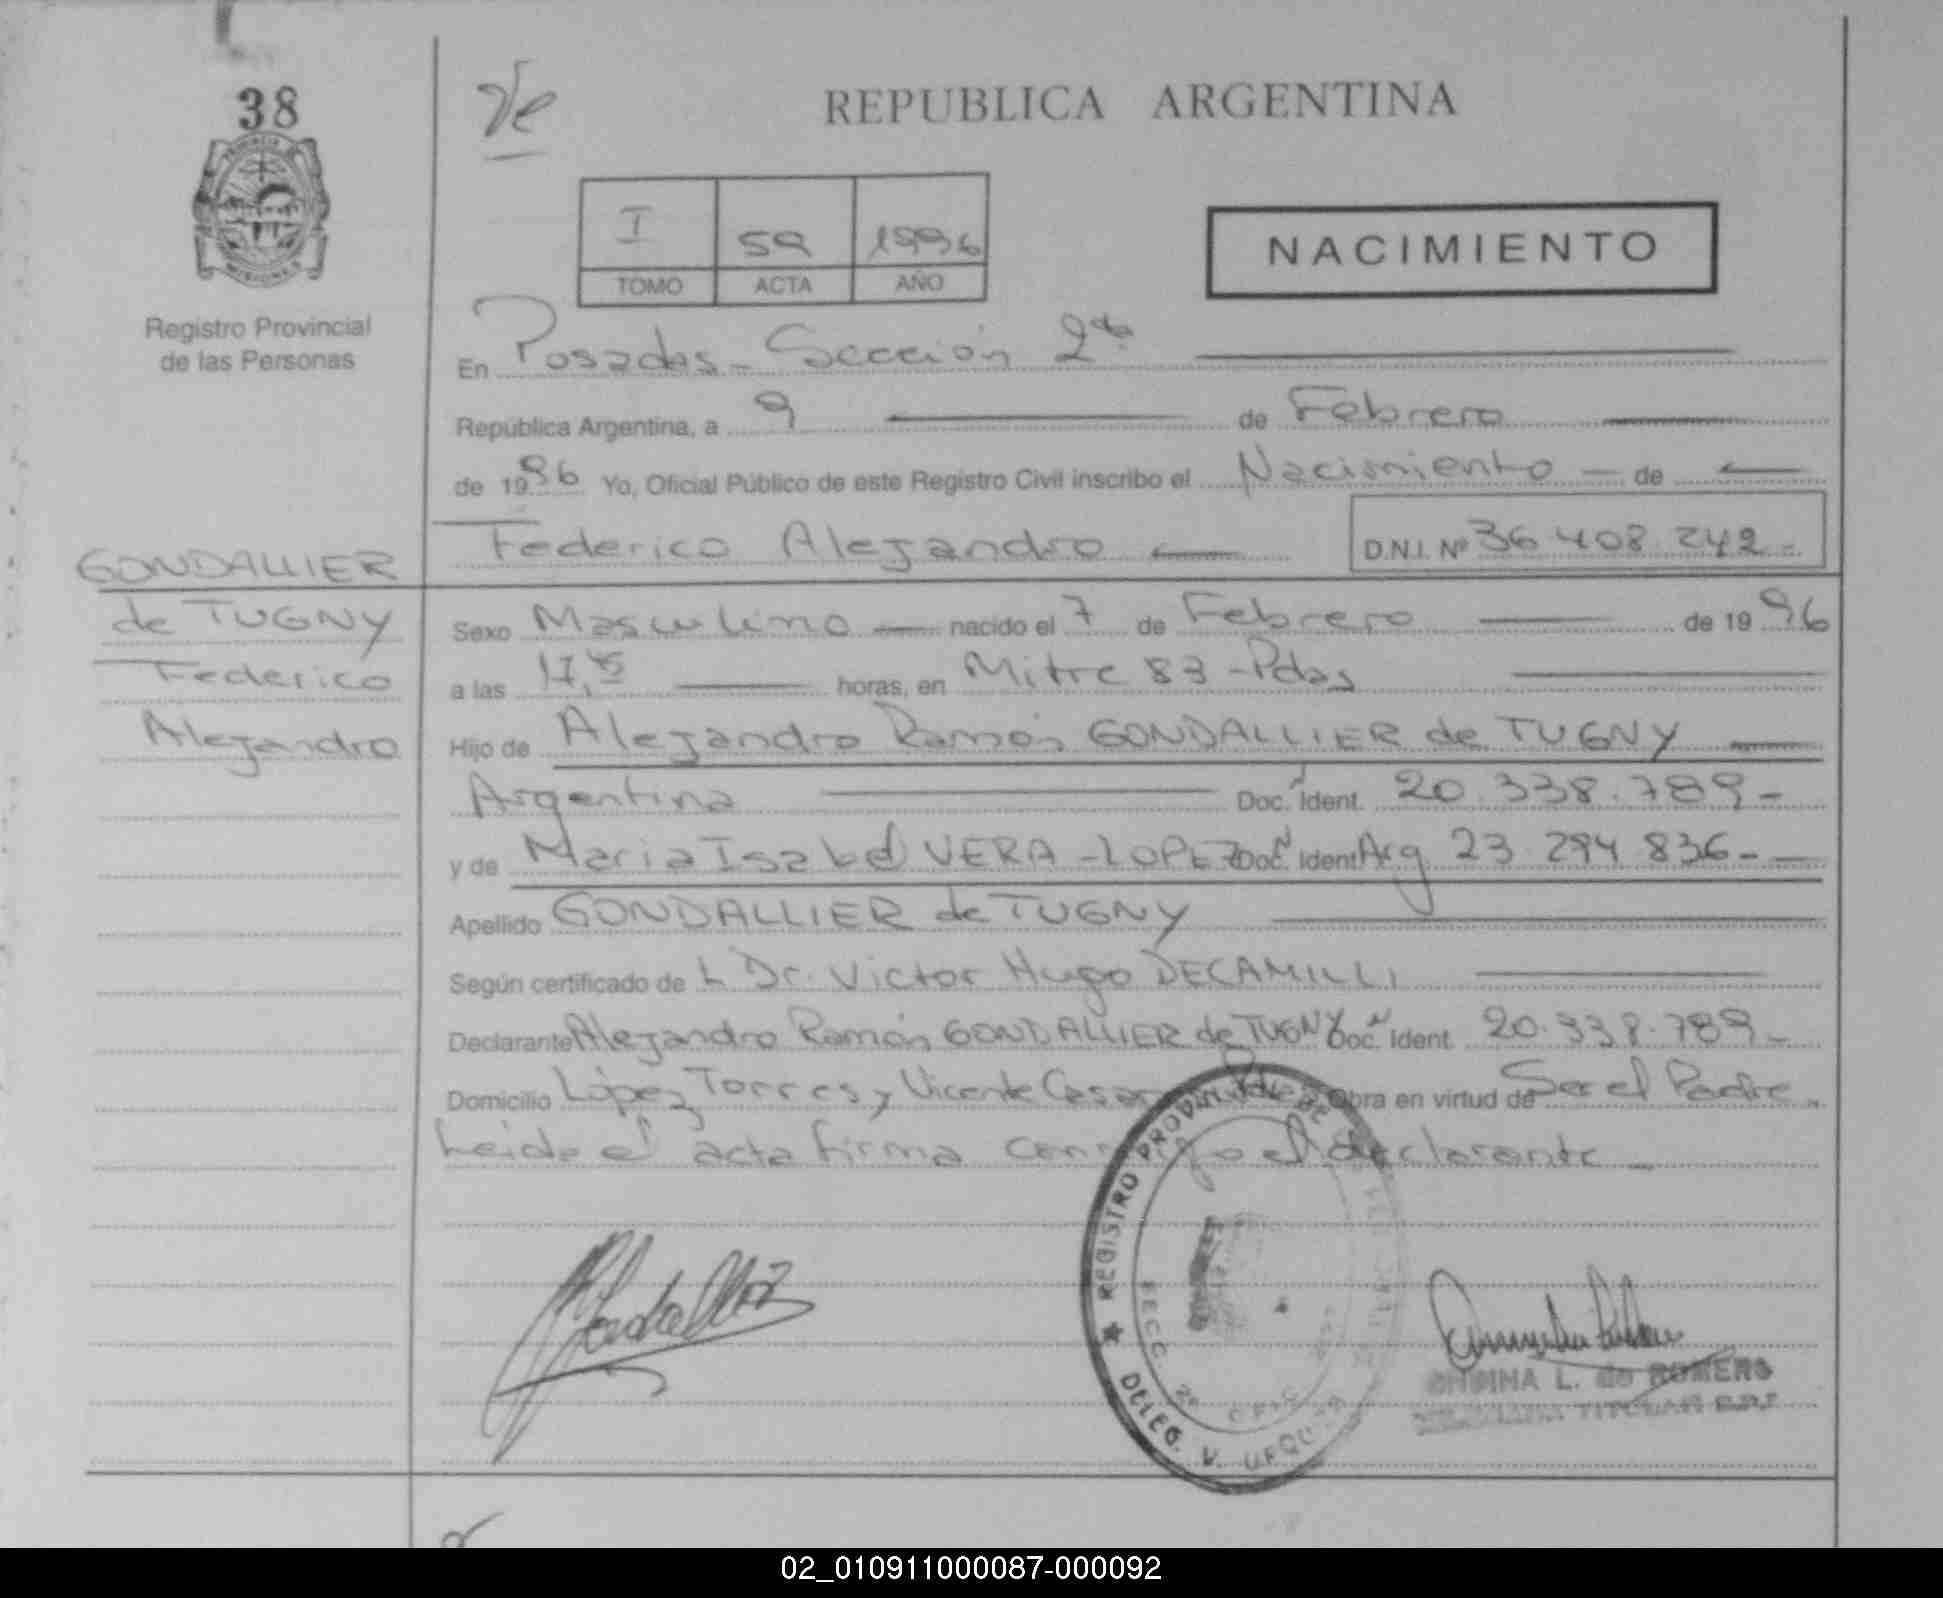 38
Ve
REPUBLICA ARGENTINA
PROVINCIA DE
MISIONES
I 59 1996
TOMO ACTA AÑO
NACIMIENTO
Registro Provincial
de las Personas
En Posadas - Sección 2da
República Argentina, a 9 de Febrero
de 1996 Yo, Oficial Público de este Registro Civil inscribo el Nacimiento de
Federico Alejandro D.N.I. Nº 36 408 242-
GONDALLIER
de TUGNY
Federico
Alejandro
Sexo Masculino nacido el 7 de Febrero de 1996
a las 17,45 horas, en Mitre 83 - Pdas
Hijo de Alejandro Ramón GONDALLIER de TUGNY
Argentina Doc. Ident. 20.338.789-
y de Maria Isabel VERA - LOPEZ Doc. Ident Arg 23 294 836-
Apellido GONDALLIER de TUGNY
Según certificado de L Dr. Victor Hugo DECAMILLI
Declarante Alejandro Ramón GONDALLIER de TUGNY Doc. Ident. 20.338.789-
Domicilio López Torres y Vicente Casares Obra en virtud de Ser el Padre.
Leída el acta firma conmigo el declarante
REGISTRO PROVINCIAL DE
SECC. 2ª
DELEG. V. URQUIZA
L. de ROMERO
TITULAR
02_010911000087-000092